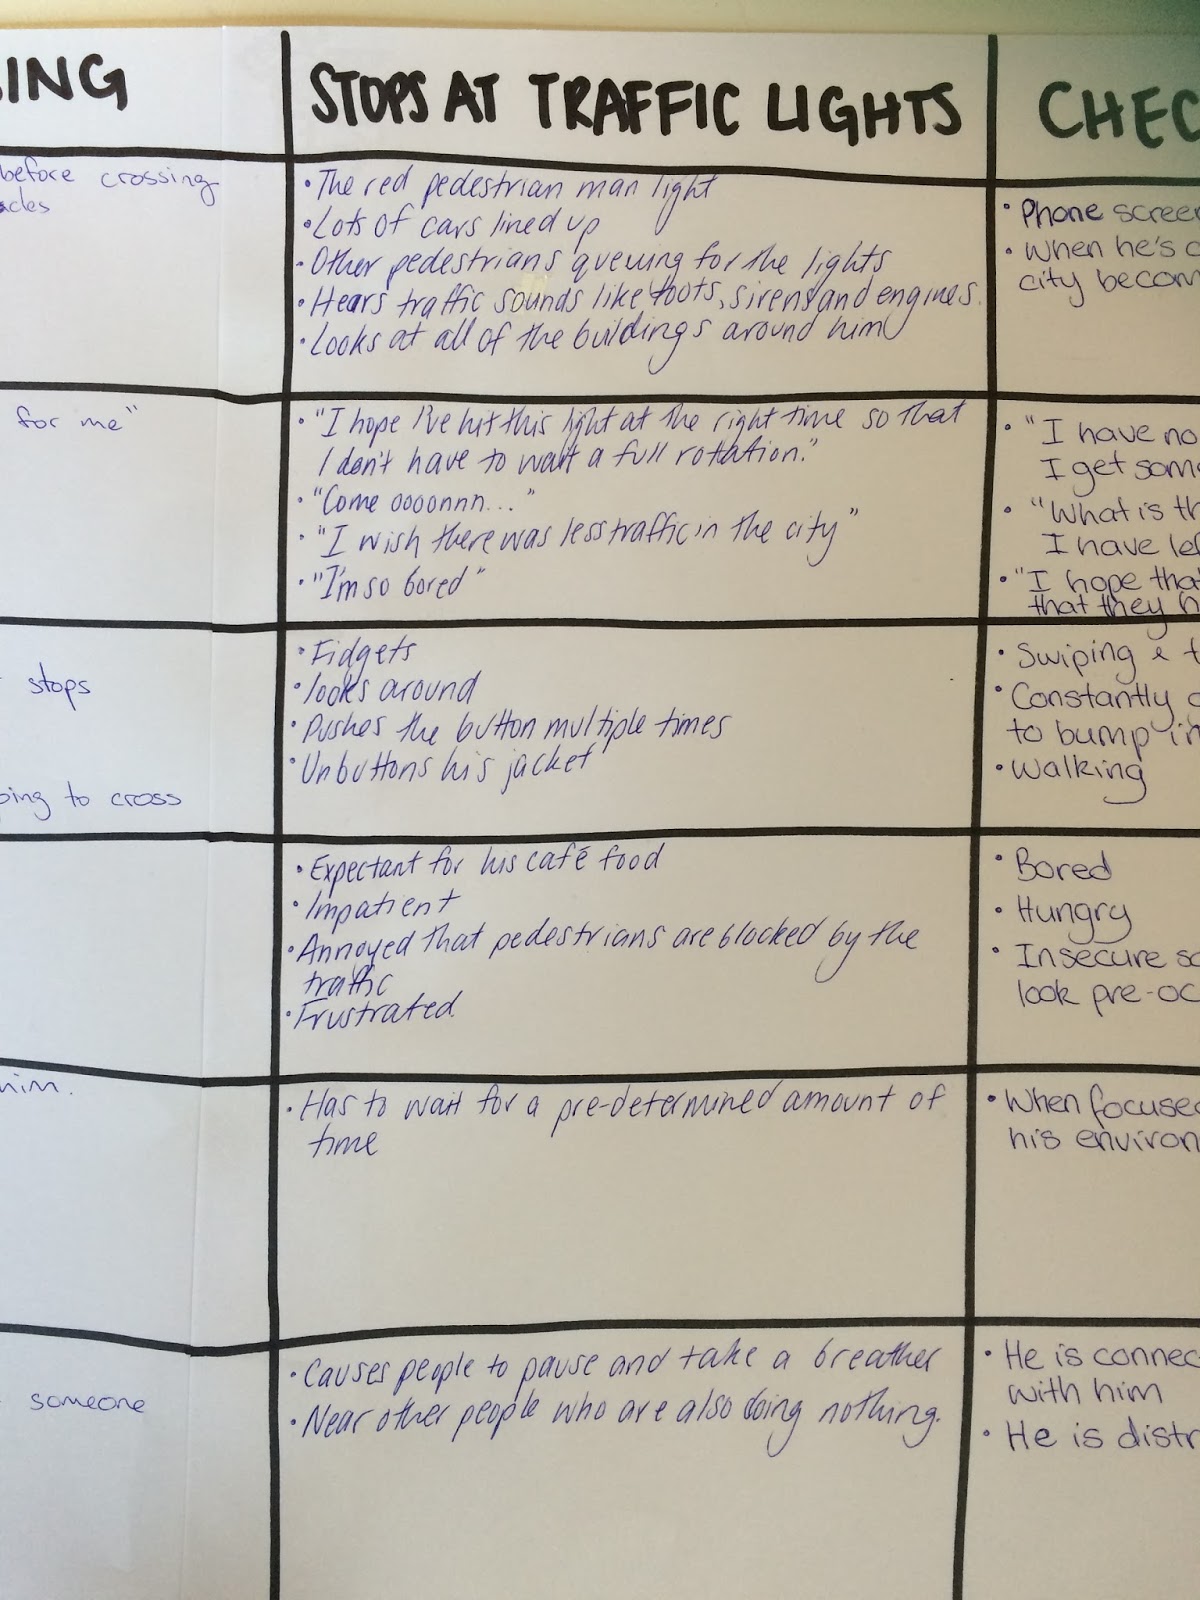 ING
before crossing
for me"
stops
to cross
him.
someone
STOPS AT TRAFFIC LIGHTS
• The red pedestrian man light
• Lots of cars lined up
• Other pedestrians queuing for the lights
• Hears traffic sounds like toots, sirens and engines.
• Looks at all of the buildings around him
• "I hope I've hit this light at the right time so that
I don't have to wait a full rotation."
• "Come oooonnn..."
• "I wish there was less traffic in the city"
• "I'm so bored"
• Fidgets
• looks around
• Pushes the button multiple times
• Unbuttons his jacket
• Expectant for his café food
• Impatient
• Annoyed that pedestrians are blocked by the
traffic
• Frustrated.
• Has to wait for a pre-determined amount of
time
• Causes people to pause and take a breather
• Near other people who are also doing nothing.
CHEC
• Phone screen
• When he's
city becom
• "I have no
I get some
• "What is th
I have lef
• "I hope that
that they h
• Swiping & t
• Constantly
to bump in
• Walking
• Bored
• Hungry
• Insecure so
look pre-oc
• When focused
his environ
• He is connec
with him
• He is distr